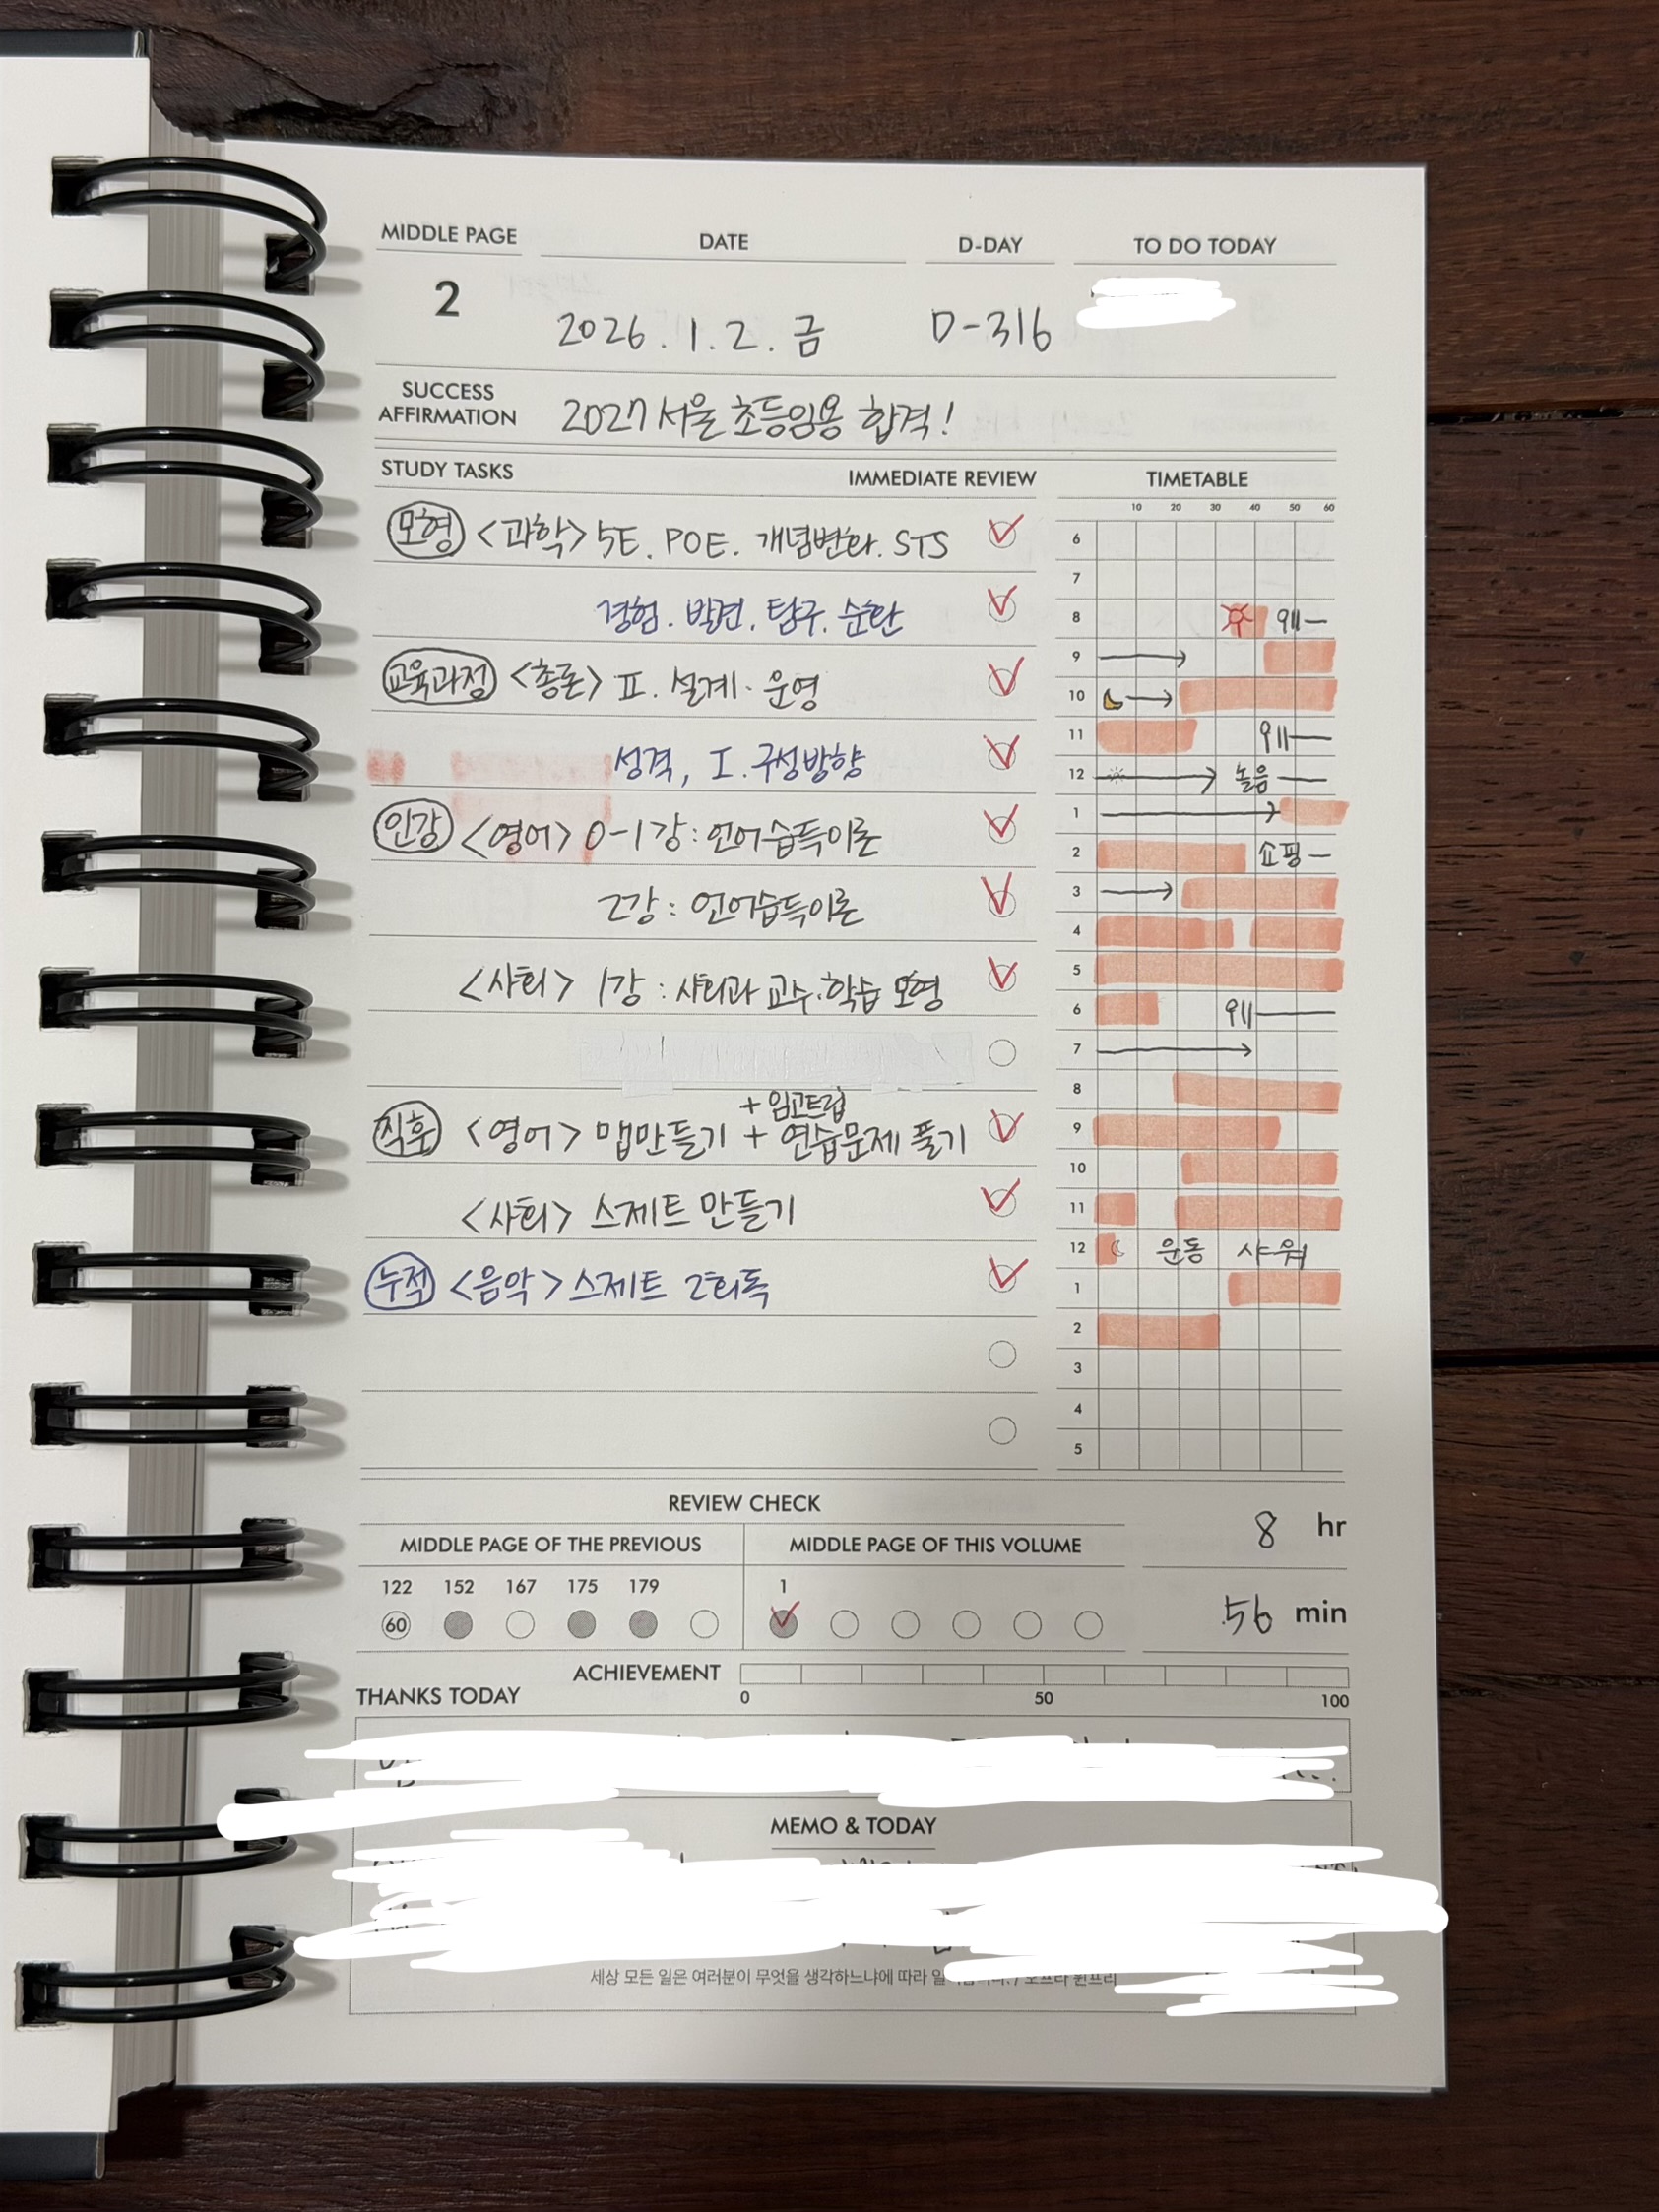 MIDDLE PAGE DATE D-DAY TO DO TODAY
2 2026.1.2.금 D-316
SUCCESS AFFIRMATION 2027 서울 초등임용 합격!
STUDY TASKS IMMEDIATE REVIEW
모형 <과학> 5E. POE. 개념변화. STS
경험. 발견. 탐구. 순환
교육과정 <총론> Ⅱ. 설계·운영
성격, Ⅰ. 구성방향
인강 <영어> 0-1강: 언어습득이론
2강: 언어습득이론
<사회> 1강: 사회과 교수·학습 모형
+ 임고트럽
직후 <영어> 맵만들기 + 연습문제 풀기
<사회> 스제트 만들기
누적 <음악> 스제트 2회독
TIMETABLE
10 20 30 40 50 60
6
7
8 외
9
10
11 외
12 놀음
1
2 쇼핑
3
4
5
6 외
7
8
9
10
11
12 운동 샤워
1
2
3
4
5
REVIEW CHECK
MIDDLE PAGE OF THE PREVIOUS MIDDLE PAGE OF THIS VOLUME
122 152 167 175 179 1
60
8 hr
56 min
ACHIEVEMENT
0 50 100
THANKS TODAY
MEMO & TODAY
세상 모든 일은 여러분이 무엇을 생각하느냐에 따라 / 오프라 윈프리